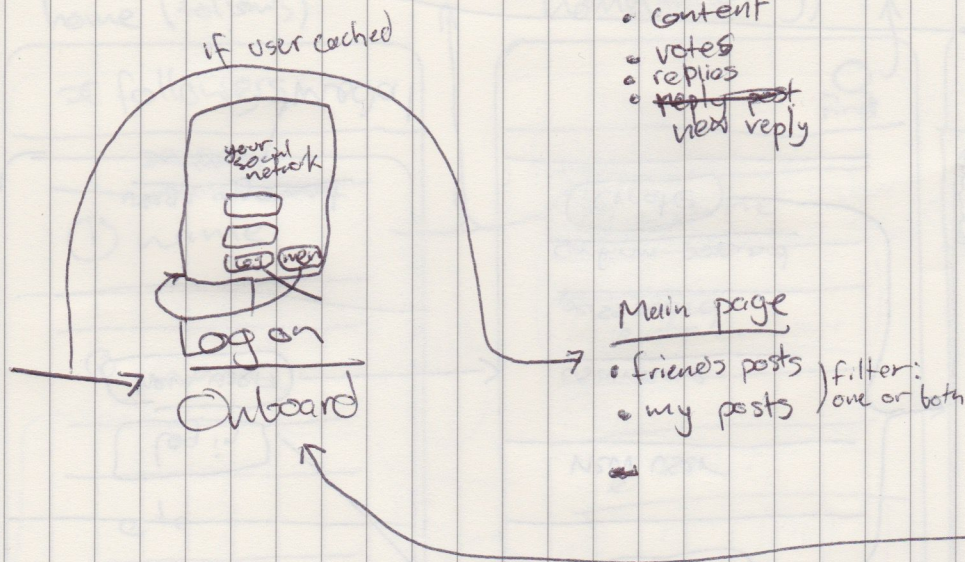 if user cached
your
social
network
log
new
Log on
Onboard
• content
• votes
• replies
• reply post
new reply
Main page
• friends posts
• my posts
filter:
one or both